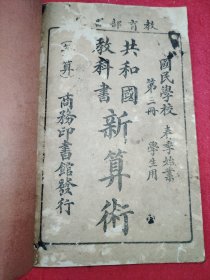 教育部審定
國民學校 春季始業
第二冊 學生用
共和國
教科書
新算術
(筆算)
商務印書館發行